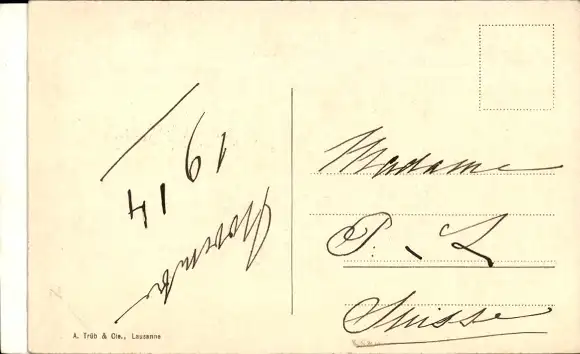 1914
Madame
P. - L
Suisse
A. Trüb & Cie., Lausanne